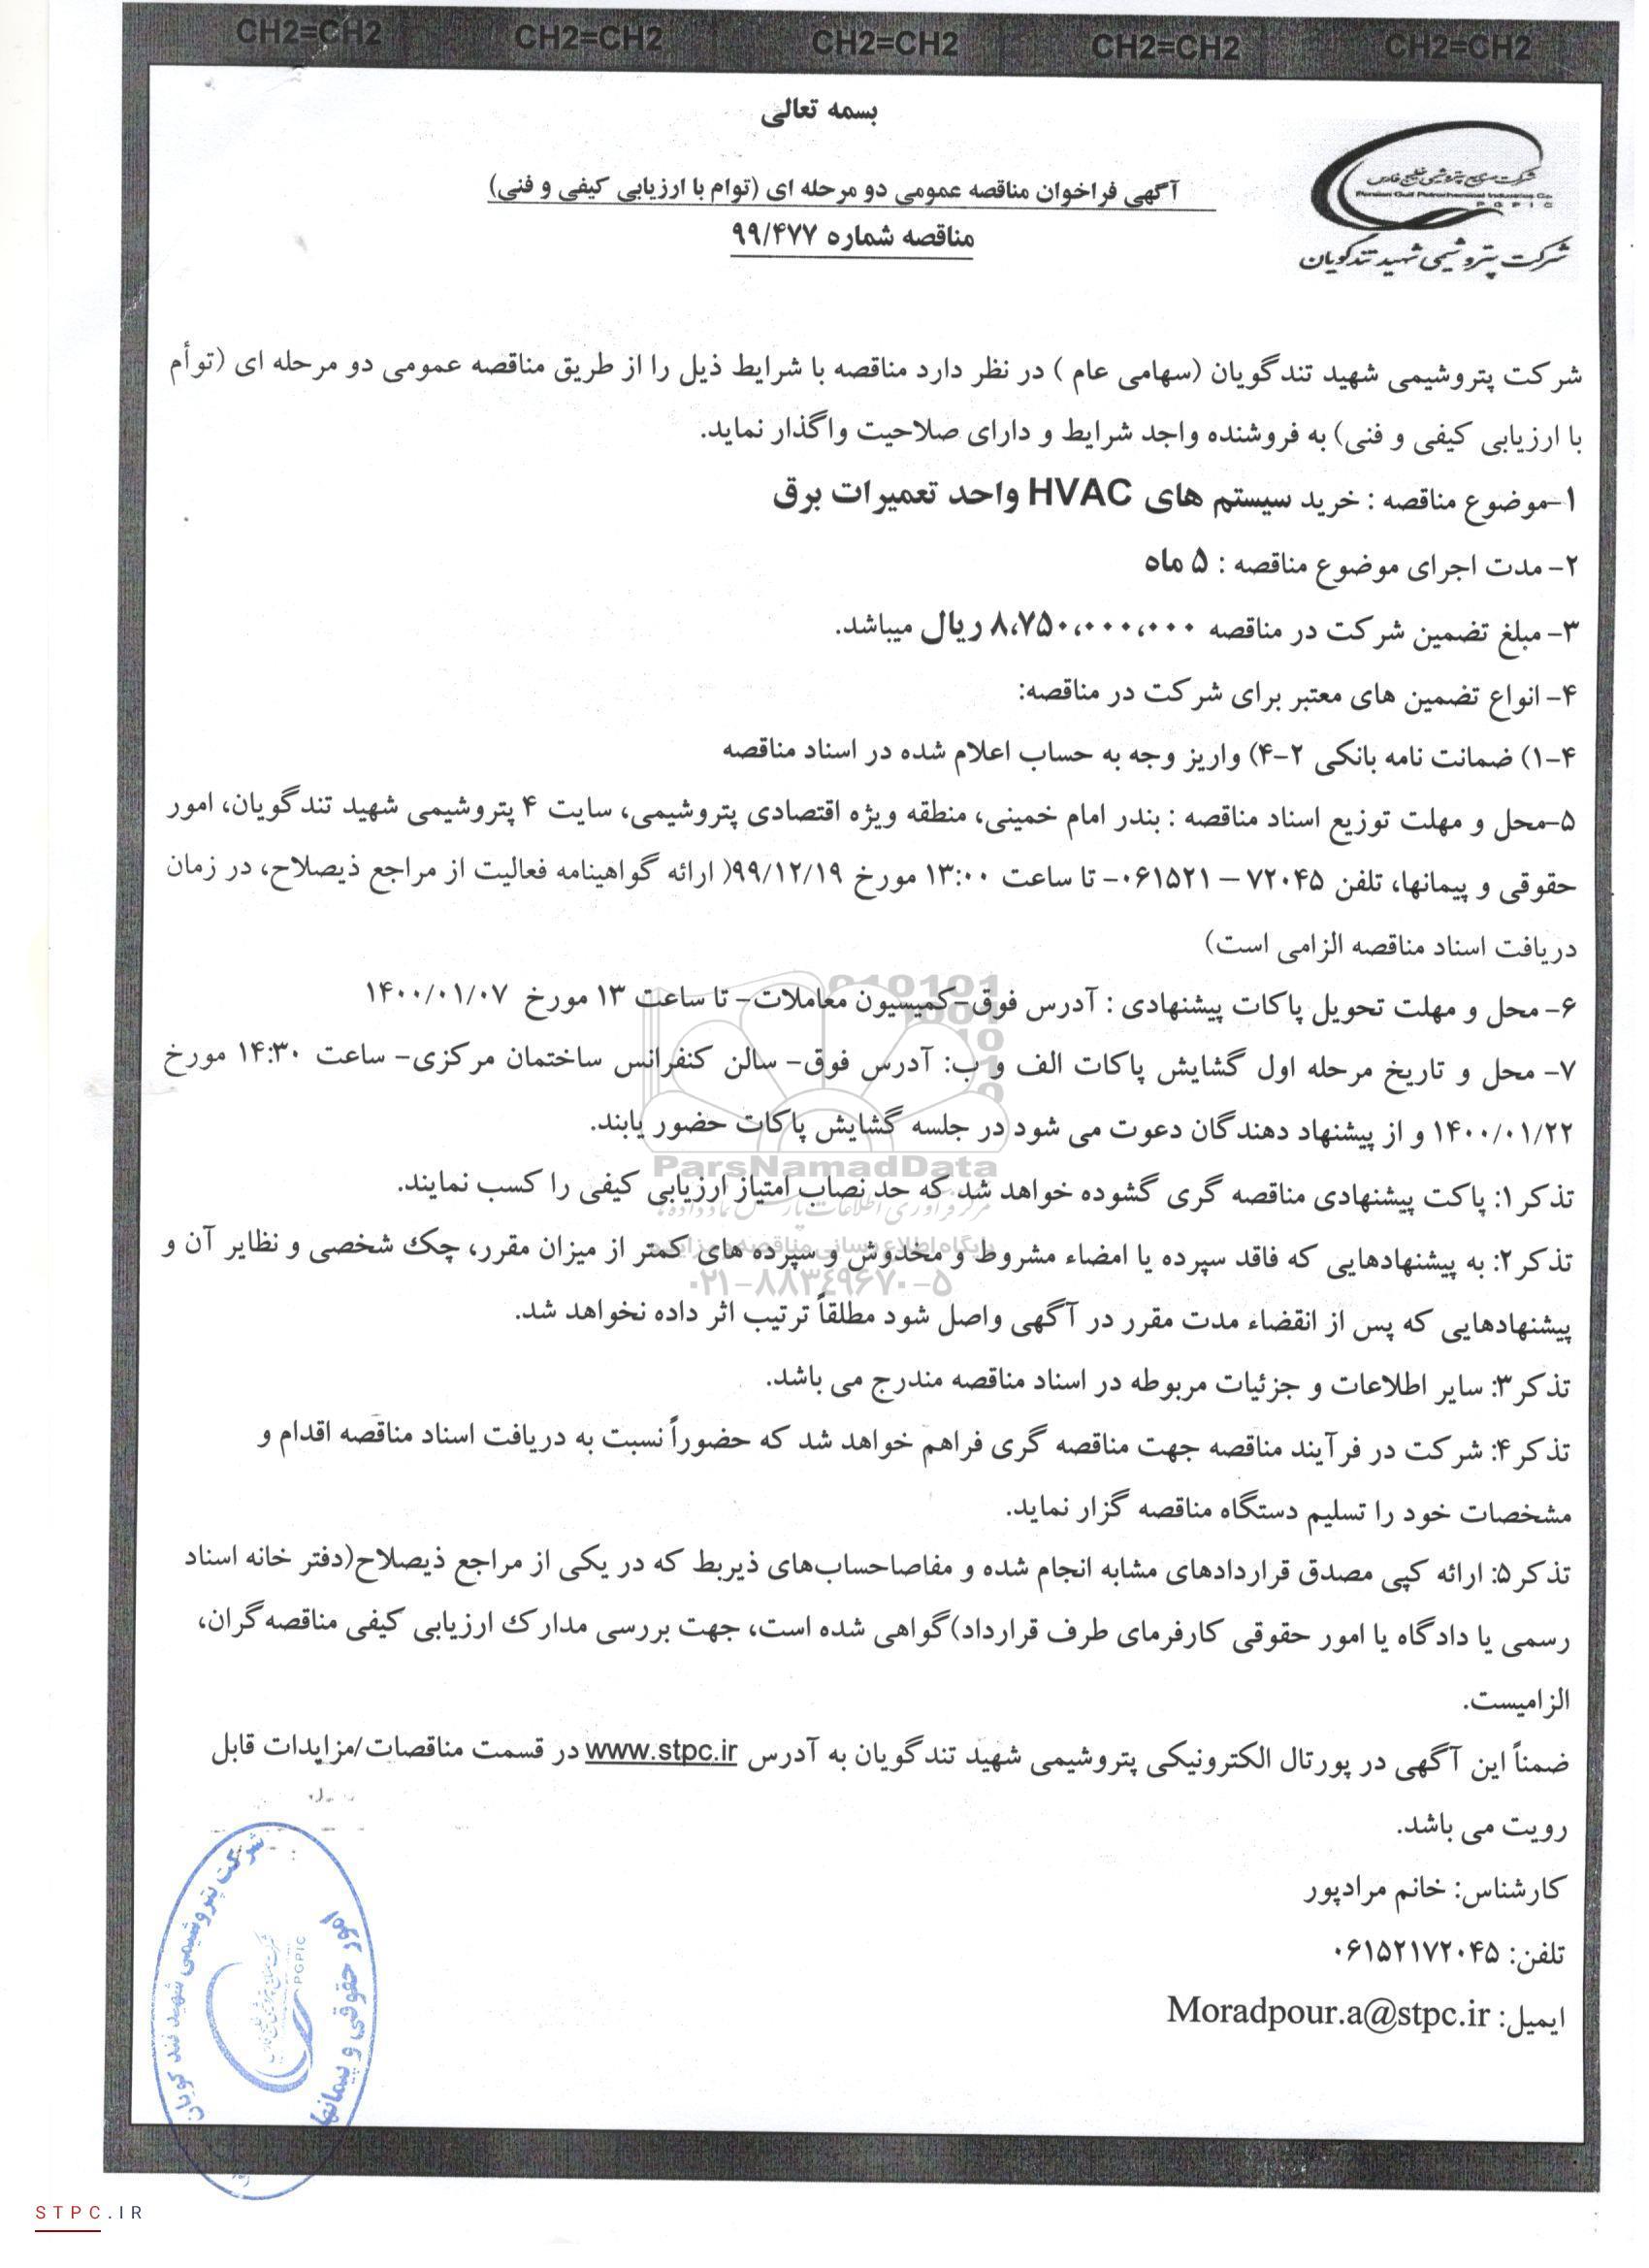 CH2=CH2 CH2=CH2 CH2=CH2 CH2=CH2 CH2=CH2
بسمه تعالی
شرکت صنایع پتروشیمی خلیج فارس
Persian Gulf Petrochemical Industries Co.
PGPIC
شرکت پتروشیمی شهید تندگویان
آگهی فراخوان مناقصه عمومی دو مرحله ای (توام با ارزیابی کیفی و فنی)
مناقصه شماره ۹۹/۴۷۷
شرکت پتروشیمی شهید تندگویان (سهامی عام ) در نظر دارد مناقصه با شرایط ذیل را از طریق مناقصه عمومی دو مرحله ای (توأم
با ارزیابی کیفی و فنی) به فروشنده واجد شرایط و دارای صلاحیت واگذار نماید.
۱-موضوع مناقصه : خرید سیستم های HVAC واحد تعمیرات برق
۲- مدت اجرای موضوع مناقصه : ۵ ماه
۳- مبلغ تضمین شرکت در مناقصه ۸،۷۵۰،۰۰۰،۰۰۰ ریال میباشد.
۴- انواع تضمین های معتبر برای شرکت در مناقصه:
۴-۱) ضمانت نامه بانکی ۲-۴) واریز وجه به حساب اعلام شده در اسناد مناقصه
۵-محل و مهلت توزیع اسناد مناقصه : بندر امام خمینی، منطقه ویژه اقتصادی پتروشیمی، سایت ۴ پتروشیمی شهید تندگویان، امور
حقوقی و پیمانها، تلفن ۷۲۰۴۵ – ۰۶۱۵۲۱- تا ساعت ۱۳:۰۰ مورخ ۹۹/۱۲/۱۹( ارائه گواهینامه فعالیت از مراجع ذیصلاح، در زمان
دریافت اسناد مناقصه الزامی است)
۶- محل و مهلت تحویل پاکات پیشنهادی : آدرس فوق-کمیسیون معاملات- تا ساعت ۱۳ مورخ ۱۴۰۰/۰۱/۰۷
۷- محل و تاریخ مرحله اول گشایش پاکات الف و ب: آدرس فوق- سالن کنفرانس ساختمان مرکزی- ساعت ۱۴:۳۰ مورخ
۱۴۰۰/۰۱/۲۲ و از پیشنهاد دهندگان دعوت می شود در جلسه گشایش پاکات حضور یابند.
ParsNamadData
تذکر ۱: پاکت پیشنهادی مناقصه گری گشوده خواهد شد که حد نصاب امتیاز ارزیابی کیفی را کسب نمایند.
مرکز فرآوری اطلاعات پارس نماد داده ها
پایگاه اطلاع رسانی مناقصه و مزایده
تذکر ۲: به پیشنهادهایی که فاقد سپرده یا امضاء مشروط و مخدوش و سپرده های کمتر از میزان مقرر، چک شخصی و نظایر آن و
۰۲۱-۸۸۳۴۹۶۷۰-۵
پیشنهادهایی که پس از انقضاء مدت مقرر در آگهی واصل شود مطلقاً ترتیب اثر داده نخواهد شد.
تذکر ۳: سایر اطلاعات و جزئیات مربوطه در اسناد مناقصه مندرج می باشد.
تذکر ۴: شرکت در فرآیند مناقصه جهت مناقصه گری فراهم خواهد شد که حضوراً نسبت به دریافت اسناد مناقصه اقدام و
مشخصات خود را تسلیم دستگاه مناقصه گزار نماید.
تذکر ۵: ارائه کپی مصدق قراردادهای مشابه انجام شده و مفاصاحساب‌های ذیربط که در یکی از مراجع ذیصلاح(دفتر خانه اسناد
رسمی یا دادگاه یا امور حقوقی کارفرمای طرف قرارداد)گواهی شده است، جهت بررسی مدارک ارزیابی کیفی مناقصه‌گران،
الزامیست.
ضمناً این آگهی در پورتال الکترونیکی پتروشیمی شهید تندگویان به آدرس www.stpc.ir در قسمت مناقصات/مزایدات قابل
رویت می باشد.
کارشناس: خانم مرادپور
تلفن: ۰۶۱۵۲۱۷۲۰۴۵
ایمیل: Moradpour.a@stpc.ir
شرکت پتروشیمی شهید تندگویان
PGPIC
امور حقوقی و پیمانها
STPC.IR